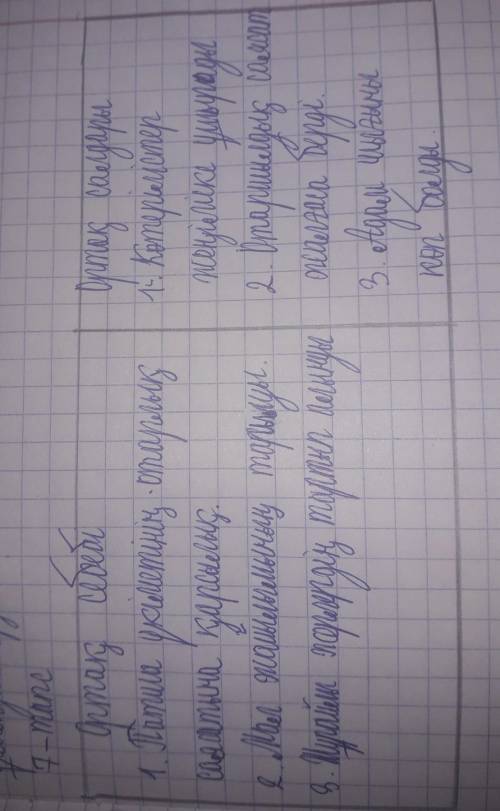 7-тапс
Ортақ себебі
1. Патша үкіметінің отарлық
саясатына қарсылық.
2. Мал жайылымының тарылуы.
3. Шұрайлы жерлердің тартып алынуы
Ортақ салдары
1. Көтерілістер
жеңіліске ұшырады
2. Отаршылдық саясат
жалғаса берді.
3. Адам шығыны
көп болды.